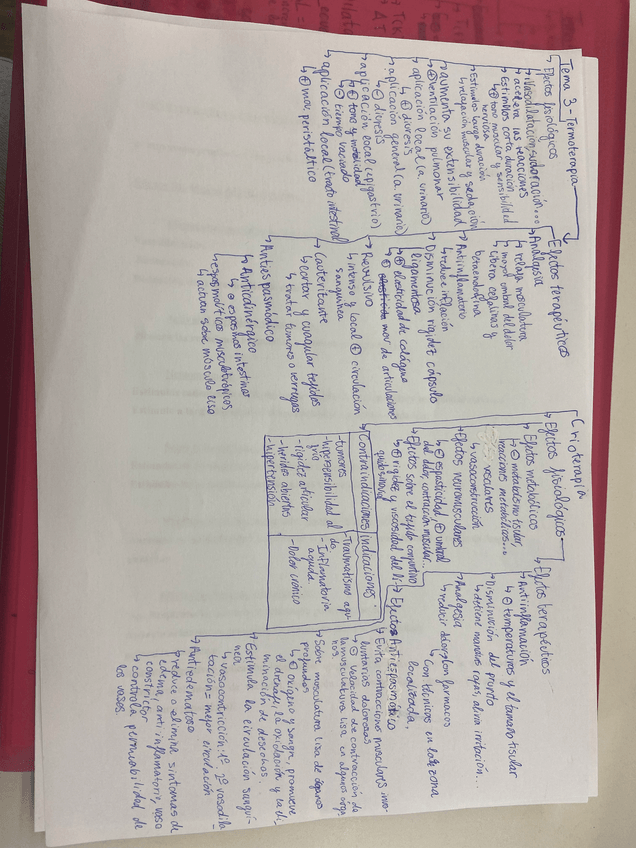 Tema 3- Termoterapia
↳ Efectos fisiológicos
↳ Vasodilatación, sudoración...
↳ acelera las reacciones
↳ Estímulos corta duración
↳ ⊕ tono muscular y sensibilidad
nerviosa
↳ Estímulos larga duración
↳ relajación muscular y sedación
↳ aumenta su extensibilidad
↳ ⊕ ventilación pulmonar
↳ aplicación local (a urinario)
↳ ⊕ diuresis
↳ aplicación general (a urinario)
↳ ⊖ diuresis
↳ aplicación local (epigastrio)
↳ ⊕ tono y motilidad
↳ ⊖ tiempo vaciado
↳ aplicación local (tracto intestinal)
↳ ⊕ mov peristáltico
Efectos terapéuticos
↳ Analgesia
↳ relaja musculatura
↳ mayor umbral del dolor
↳ libera celulinas y
betaendorfina
↳ Antiinflamatorio
↳ reduce inflación
↳ Disminución rigidez cápsulo
ligamentosa
↳ ⊕ elasticidad de colágeno
↳ ⊕ mov de articulaciones
↳ Revulsivo
↳ intenso y local ⊕ circulación
sanguínea
↳ Cauterizante
↳ cortar y coagular tejidos
↳ tratar tumores o verrugas
↳ Antiespasmódico
↳ Anticolinérgico
↳ ⊖ espasmos intestinos
↳ espasmolíticos musculotrópicos
↳ actuan sobre músculo liso
Crioterapia
↳ Efectos fisiológicos
↳ Efectos metabólicos
↳ ⊖ metabolismo tisular,
reacciones metabólicas...
vasculares
↳ vasoconstrucción
↳ Efectos neuromusculares
↳ ⊖ espasticidad ⊕ umbral
del dolor, contracción muscular...
↳ Efectos sobre el tejido conjuntivo
↳ ⊕ rigidez y viscosidad del lí-
quido sinovial
Contraindicaciones
- tumores
- hipersensibilidad al
frío
- rigidez articular
- heridas abiertas
- hipertensión
indicaciones
- Traumatismo agu-
do.
- Inflamatoria
aguda.
- Dolor crónico
Efectos terapéuticos
↳ Antiinflamación
↳ ⊖ temperaturas y el tamaño tisular
↳ Disminución del prurito
↳ detiene manchas rojas, alivia irritación...
↳ Analgesia
↳ reducir dolor con farmacos
↳ Con técnicas en la zona
localizada.
↳ Efectos Antiespasmódico
↳ Evita contracciones musculares invo-
luntarias dolorosas
↳ ⊖ Velocidad de contracción de
la musculatura lisa en algunos orga-
nos
↳ Sobre musculatura lisa de órganos
profundos
↳ ⊕ oxígeno y sangre, promueve
el drenaje, la oxidación y la eli-
minación de desechos...
↳ Estimula la circulación sanguí-
nea
↳ vasocontricción 1º, 2º vasodila-
tación - mayor circulación
↳ Antiedematoso
↳ reduce o elimina sintomas de
edema, anti-inflamatorio, vaso
constrictor
↳ controla permeabilidad de
los vasos.